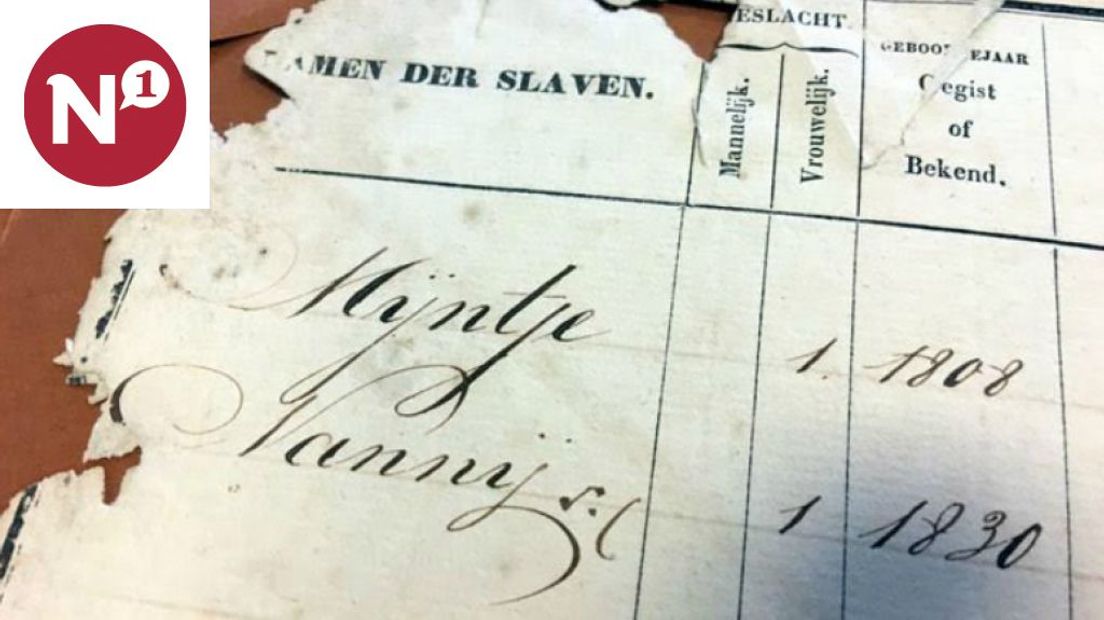 N1
AMEN DER SLAVEN.
ESLACHT.
Mannelijk.
Vrouwelijk.
GEBOO EJAAR
egist
of
Bekend.
Mijntje 1. 1808
Nannij 1 1830